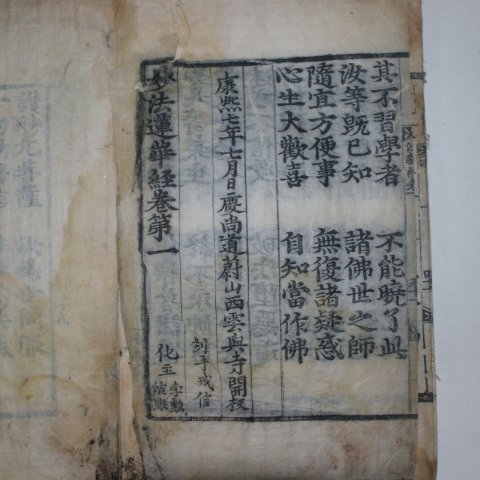 其不習學者 不能曉了此
汝等既已知 諸佛世之師
隨宜方便事 無復諸疑惑
心生大歡喜 自知當作佛
康熙七年七月日慶尚道蔚山西雲興寺開板
刻手戒信
化主
妙法蓮華經卷第一